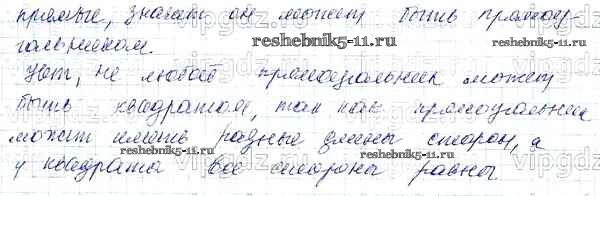 прямые, значит он может быть прямоу-
гольником.
Нет, не любой прямоугольник может
быть квадратом, так как прямоугольник
может иметь разные длины сторон, а
у квадрата все стороны равны.
reshebnik5-11.ru
reshebnik5-11.ru
reshebnik5-11.ru
reshebnik5-11.ru